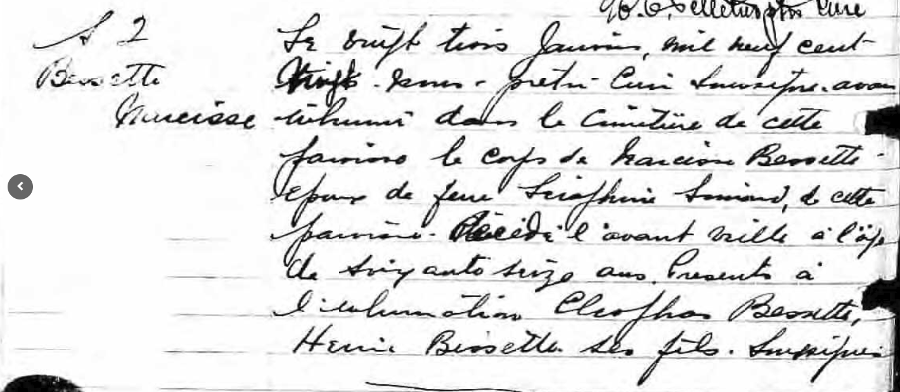 Ptre Curé
S 2
Bessette
Narcisse
Le vingt trois Janvier, mil neuf cent
vingt. nous - prêtre Curé soussigné. avons
inhumé dans le cimetière de cette
paroisse le corps de Narcisse Bessette
époux de feue Séraphine Simard, de cette
paroisse. Décédé l'avant veille à l'âge
de soixante seize ans. Présents à
l'inhumation Cleophas Bessette,
Henri Bessette ses fils. Soussignés